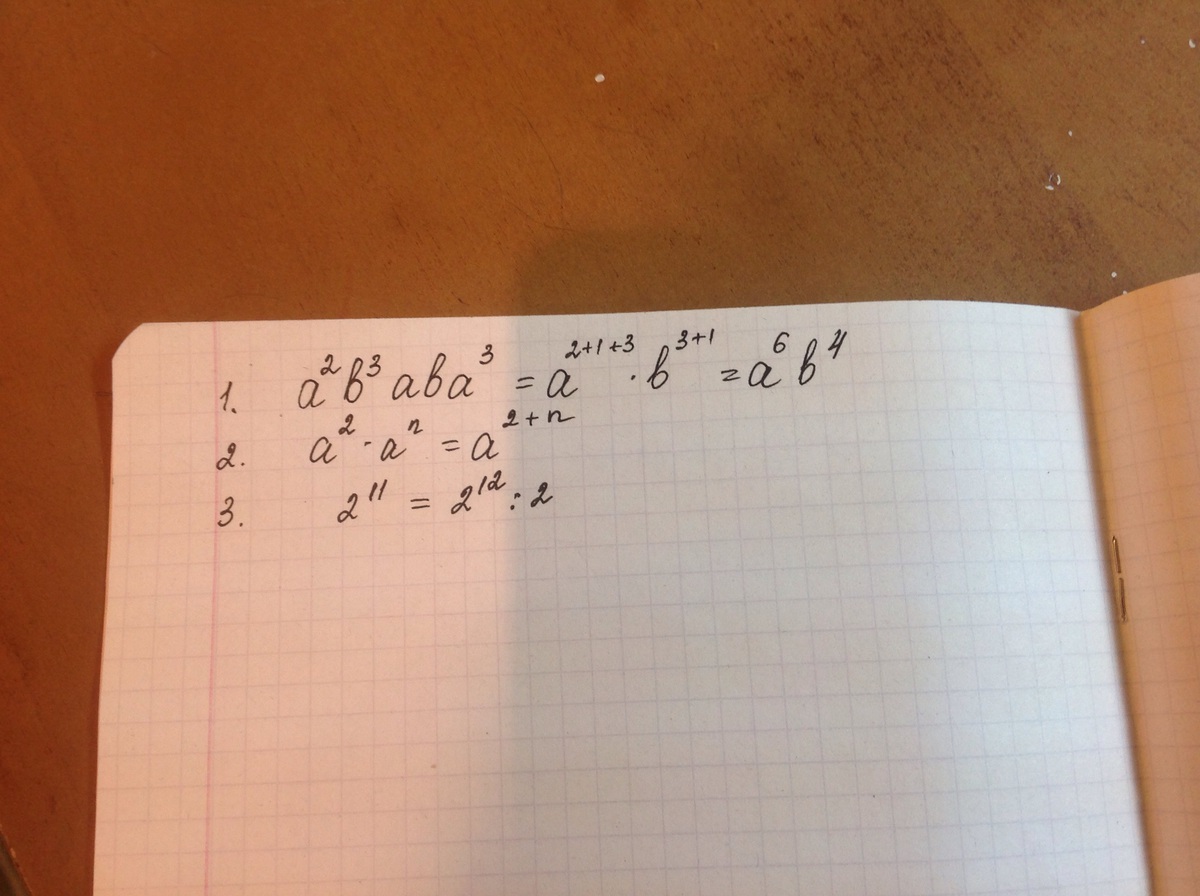 1. a²b³aba³ = a²⁺¹⁺³ · b³⁺¹ = a⁶b⁴
2. a² · aⁿ = a²⁺ⁿ
3. 2¹¹ = 2¹² : 2